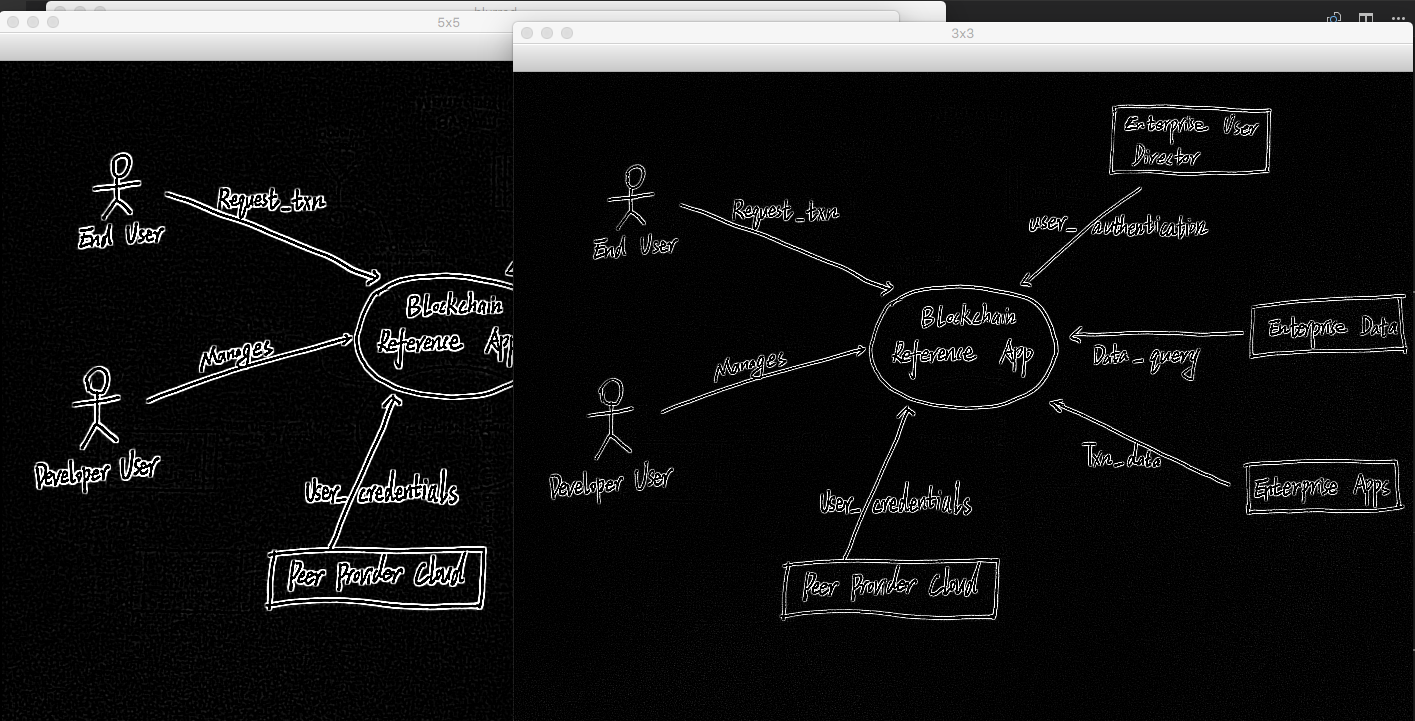 5x5
Request_txn
End User
Blockchain
Reference App
Manages
Developer User
User_credentials
Peer Provider Cloud
3x3
Enterprise User
Director
Request_txn
user_authentication
End User
Blockchain
Reference App
Enterprise Data
Data_query
Manages
Txn_data
Developer User
Enterprise Apps
User_credentials
Peer Provider Cloud